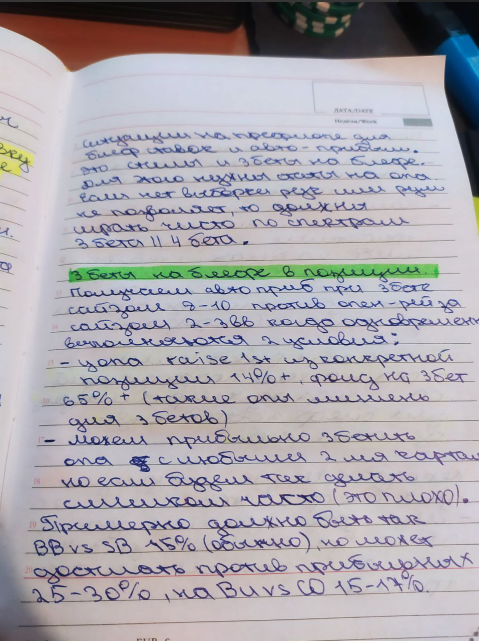 DATA/DATE
Неделя/Week
ситуации на префлопе для
блеф ставок и авто-прибыли.
это стилы и 3беты на блефе.
для этого нужны статы на опа
если нет выборки рук или руки
не позволяет, то должны
играть чисто по спектрам
3бета || 4бета.
3беты на блефе в позиции.
Получаем авто приб при 3бете
сайзом 9-10 против опен-рейза
сайзом 2-3вв когда одновременно
выполняются 2 условия:
- у опа raise 1st из конкретной
позиции 14%+, фолд на 3бет
65%+ (такие опы мишень
для 3бетов)
- можем прибыльно 3бетить
опа с любыми 2мя картам
но если будем так делать
слишком часто (это плохо).
Примерно должно быть так
BB vs SB 15% (обычно), но может
достигать против прибыльных
25-30%, на BU vs CO 15-17%.